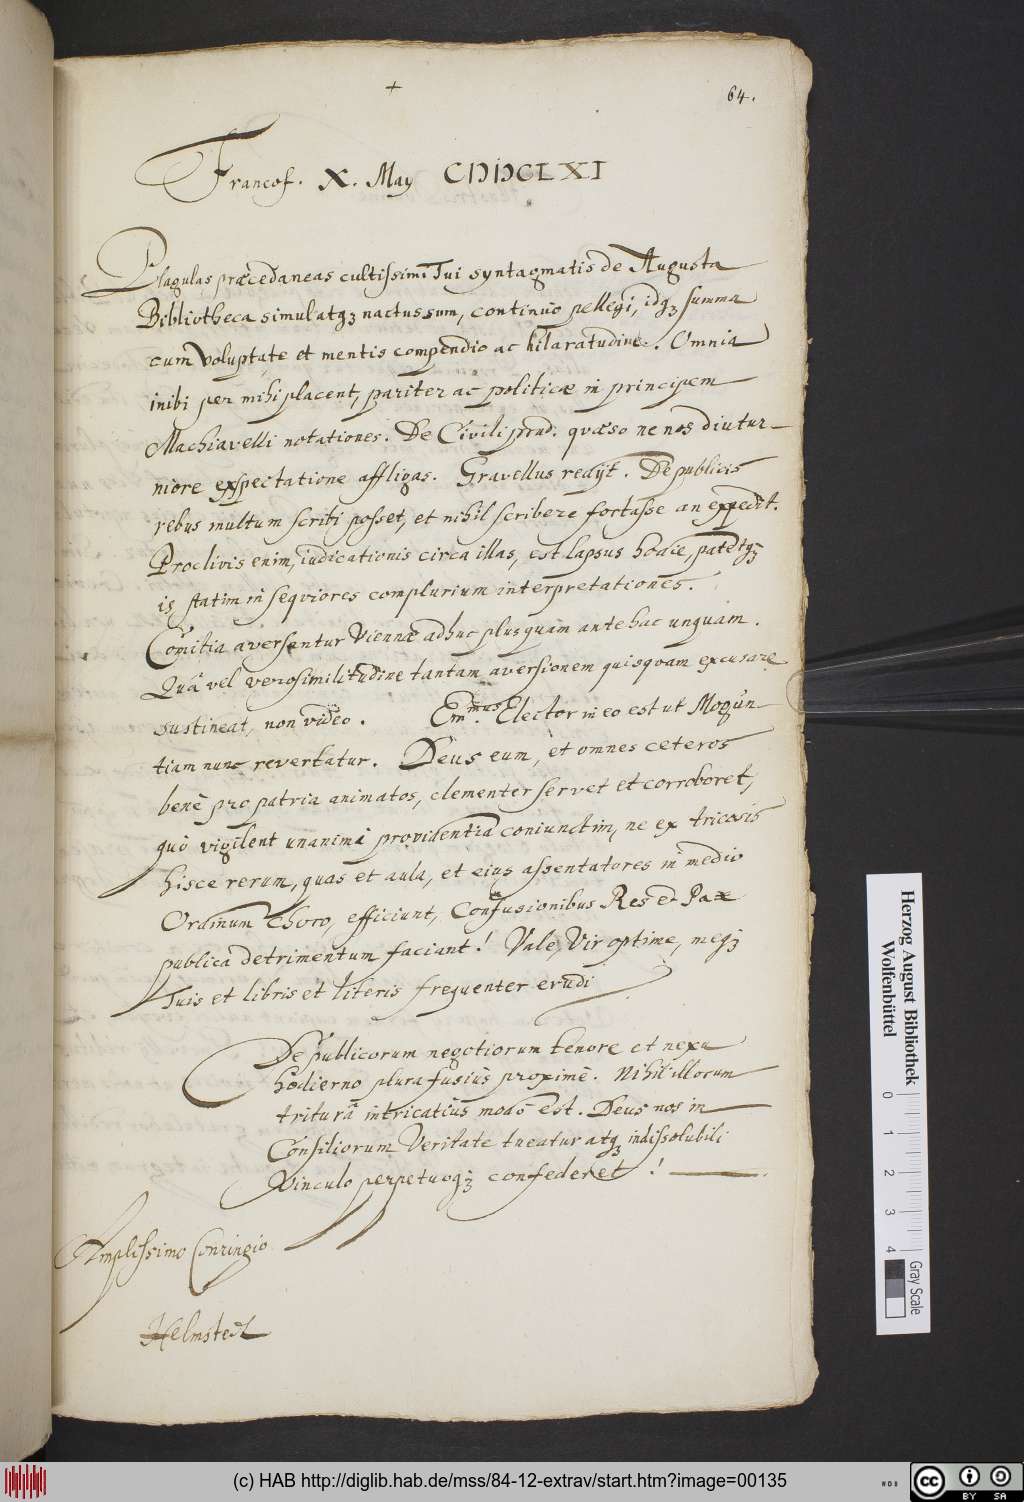 +
64.
Francof. X. May CIƆIƆCLXI
Plagulas præcedaneas cultissimi Tui syntagmatis de Augusta
Bibliotheca simulatqꝫ nactus sum, continuò pellegi, idqꝫ summa
cum Voluptate et mentis compendio ac hilaratudine. Omnia
inibi per mihi placent, pariter ac politicæ in principem
Machiavelli notationes. De Civili prud. quæso ne nos diutur-
niore exspectatione affligas. Gravellus redijt. De publicis
rebus multum scribi posset, et nihil scribere fortasse an expedit.
Proclivis enim, iudicationis circa illas, est lapsus hodie, patetqꝫ
is statim in sequiores complurium interpretationes.
Comitia aversantur Viennæ adhuc plusquam antehac unquam.
Quâ vel verosimilitudine tantam aversionem quisquam excusare
sustineat, non video. Em.mus Elector in eo est ut Mogun-
tiam nunc revertatur. Deus eum, et omnes ceteros
benè pro patria animatos, clementer servet et corroboret,
quò vigilent unanimâ providentiâ coniunctim, ne ex tricosis
hisce rerum, quas et aula, et eius assentatores in medio
Ordinum Choro, efficiunt, Confusionibus Res et Pax
publica detrimentum faciant! Vale, Vir optime, meqꝫ
Tuis et libris et literis frequenter erudi
De publicorum negotiorum tenore et nexu
hodierno plura fusius proximè. Nihil illorum
triturâ intricatius modò est. Deus nos in
Consiliorum Veritate tueatur atqꝫ indissolubili
Vinculo perpetuoqꝫ confederet!
Amplissimo Conringio
Helmstedt
Herzog August Bibliothek
Wolfenbüttel
0 1 2 3 4
Gray Scale
(c) HAB http://diglib.hab.de/mss/84-12-extrav/start.htm?image=00135
cc BY SA